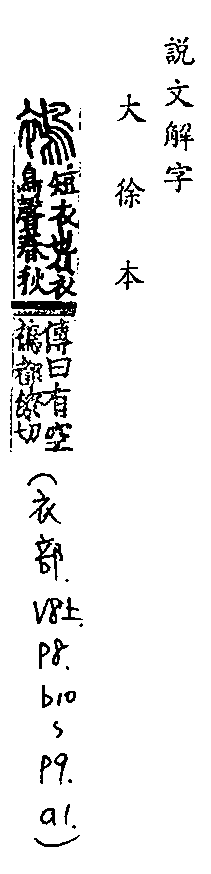 説文解字
大徐本
䙚
短衣也从衣
鳥聲春秋
傳曰有空
䙚都僚切
(衣部.V8上.P8.b10~P9.a1.)